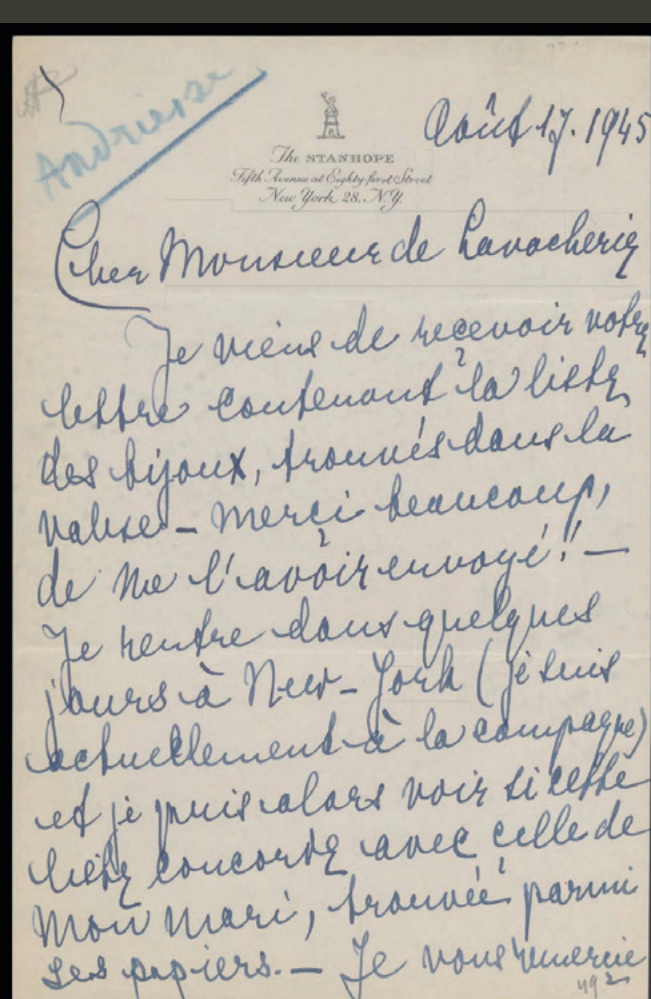 Andriesse
Août 17. 1945
The STANHOPE
Fifth Avenue at Eighty-first Street
New York 28, N.Y.
Cher Monsieur de Lavacherie
Je viens de recevoir votre
lettre contenant la liste
des bijoux, trouvés dans la
valise – merci beaucoup,
de me l'avoir envoyé! –
Je rentre dans quelques
jours à New-York (je suis
actuellement à la campagne)
et je puis alors voir si cette
liste concorde avec celle de
mon mari, trouvée parmi
ses papiers. – Je vous remercie
492